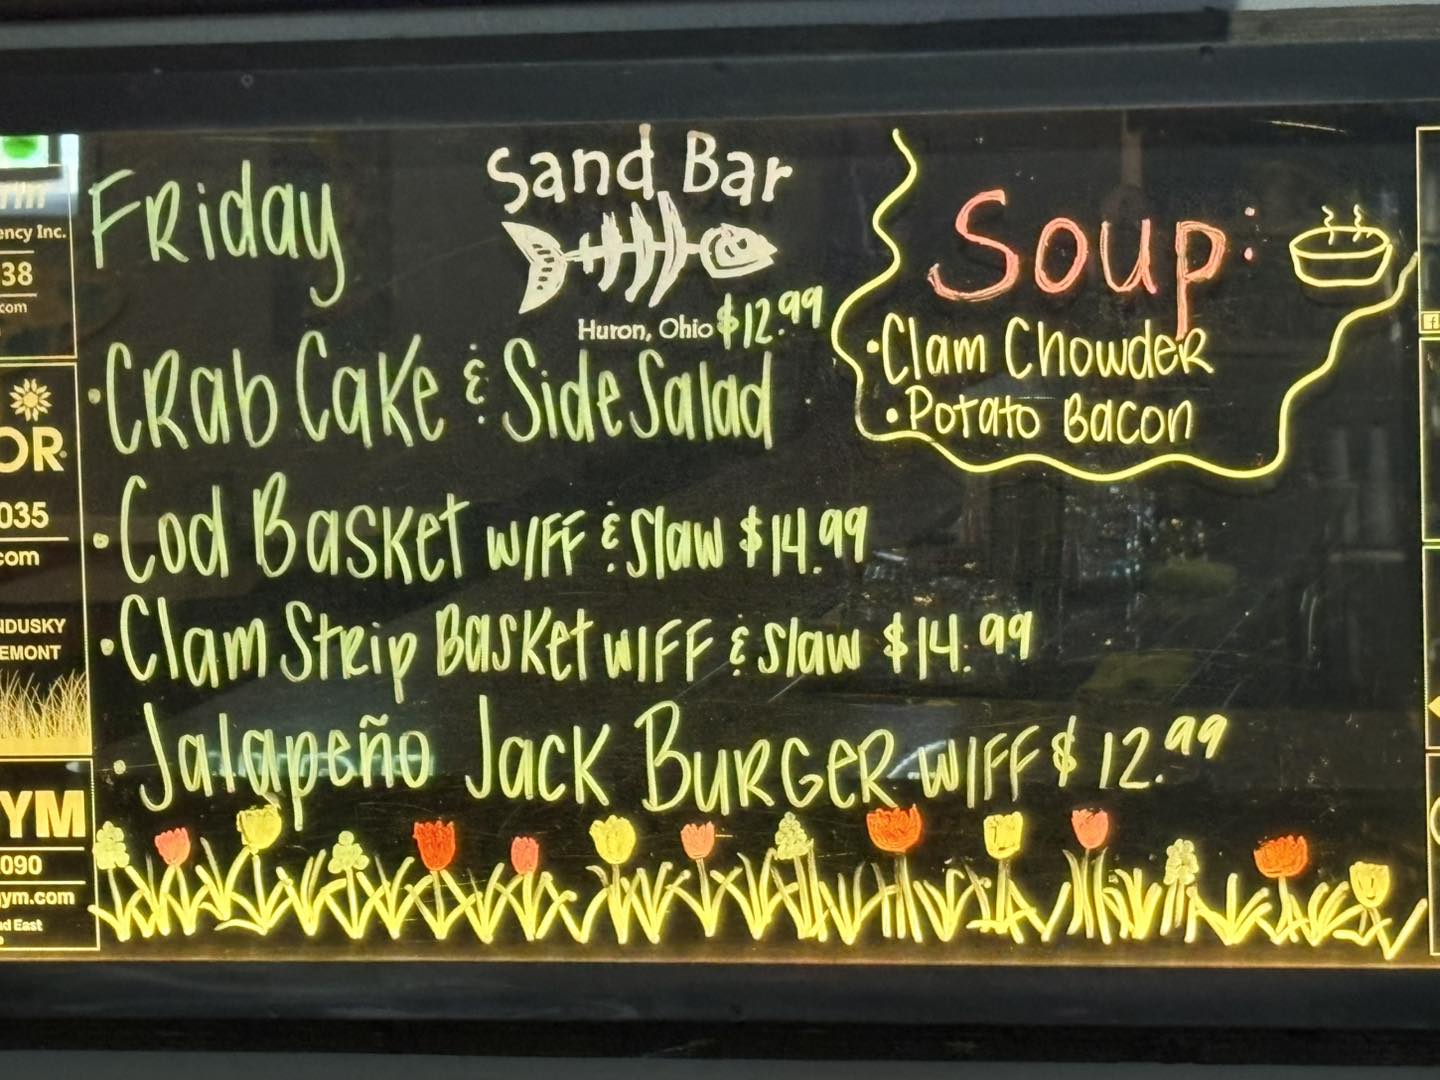 Friday
Sand Bar
Huron, Ohio
$12.99
•Crab Cake & Side Salad
•Cod Basket w/FF & Slaw $14.99
•Clam Strip Basket w/FF & Slaw $14.99
•Jalapeño Jack Burger w/FF $12.99
Soup:
•Clam Chowder
•Potato Bacon
ency Inc.
38
com
OR
035
com
NDUSKY
EMONT
YM
090
gym.com
nd East